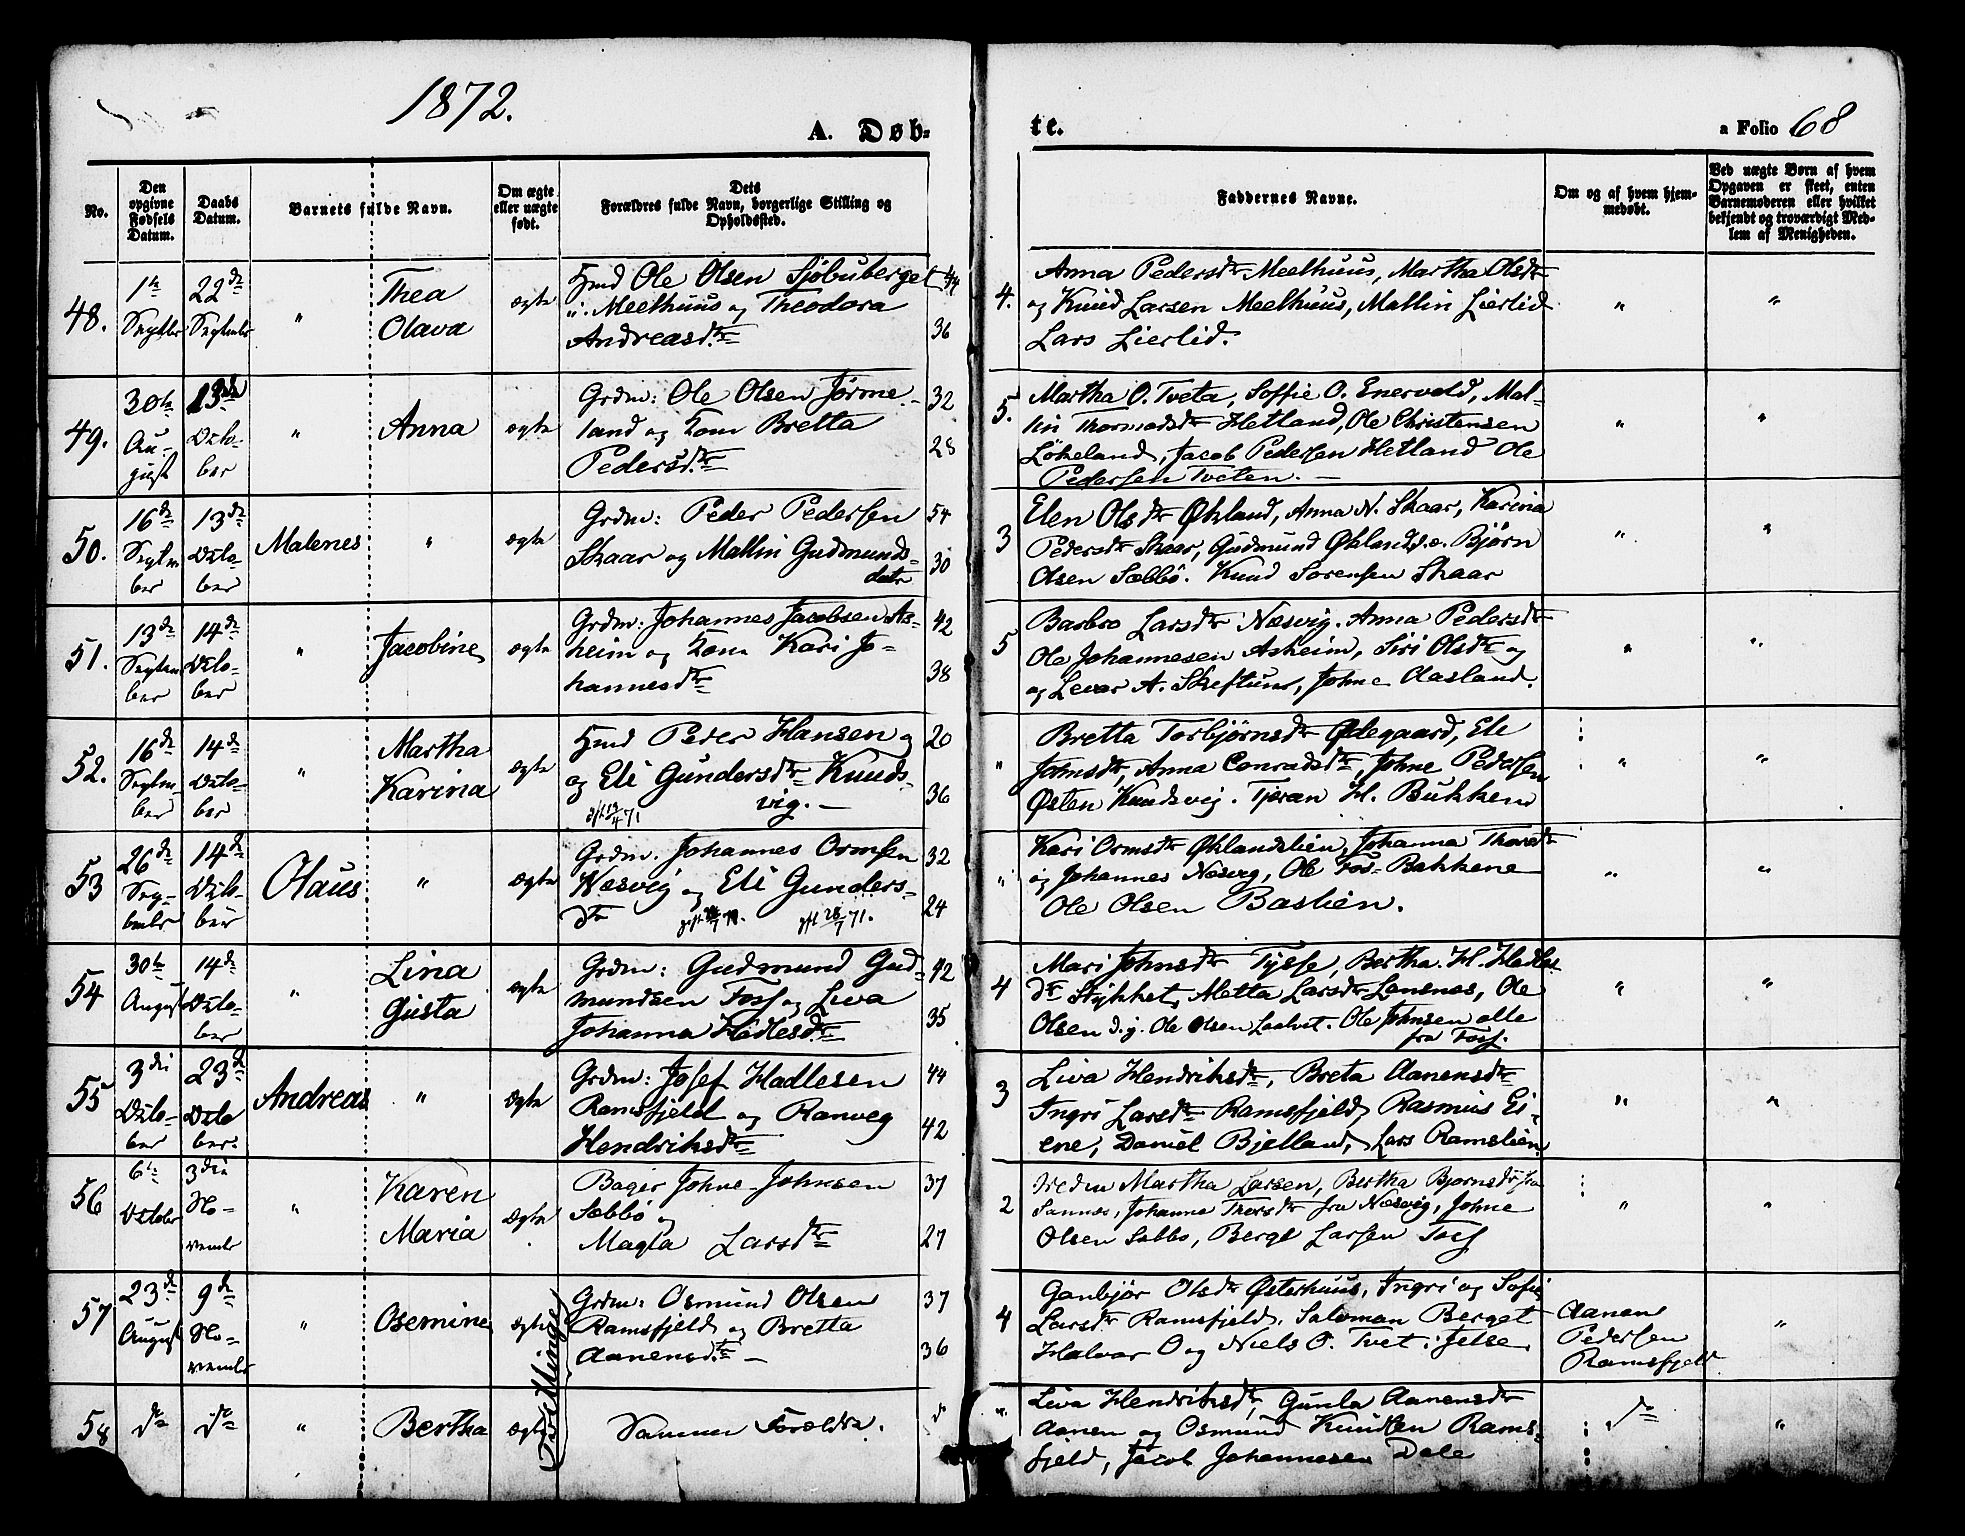 1872.
A. Døb-
te.
a Folio 68
No.
Den opgivne Fødsels Datum.
Daabs Datum.
Barnets fulde Navn.
Om ægte eller uægte født.
Dets Forældres fulde Navn, borgerlige Stilling og Opholdssted.
Faddernes Navne.
Om og af hvem hjemmedøbt.
Ved uægte Børn af hvem Opgaven er skeet, enten Barnemoderen eller hvilket bekjendt og troværdigt Medlem af Menigheden.
48. 1te Septbr 22de September " Thea Olava ægte
Hmd Ole Olsen Sjøbuberget 44
i Meelhuus og Theodora
Andreasdtr 36
4. Anna Pedersdtr Meelhuus, Martha Olsdtr
og Knud Larsen Meelhuus, Mallin Lierlid
Lars Lierlid.
" "
49. 30te August 13de October " Anna ægte
Grdm: Ole Olsen Jørme- 32
land og Kone Bretta 28
Pedersdtr
5. Martha O. Tveta, Soffie O. Enervold, Mal-
lin Thormodsdtr Hetland, Ole Christensen
Løkeland, Jacob Pedersen Hetland Ole
Pedersen Tveten.
" "
50. 16de September 13de October Malenes " ægte
Grdm: Peder Pedersen 54
Skaar og Mallin Gudmunds- 30
datr
3 Elen Olsdtr Økland, Anna N. Skaar, Karina
Pedersdtr Skaar, Gudmund Økland, Bjørn
Olsen Sæbbø. Knud Sorensen Skaar
" "
51. 13de September 14de October " Jacobine ægte
Grdm: Johannes Jacobsen As- 42
heim og Kone Kari Jo-
hannesdtr 38
5 Barbro Larsdtr Næsvig. Anna Pedersdtr
Ole Johannesen Asheim, Siri Olsdtr og
og Levar A. Skeftun, Johne Aasland.
" "
52. 16de September 14de October " Martha Karina ægte
Hmd Peder Hansen og 20
og Eli Gundersdtr Knuds-
vig. 36
" Bretta Torbjørnsdtr Ødegaard, Eli
Johnsdtr, Anna Conradsdtr, Johne Pedersen
Østen Knudsvig. Tjeran H. Bukken
" "
53 26de September 14de October Olaus " ægte
Grdm. Johannes Ormsen 32
Næsvig og Eli Gunders-
dtr 24
" Kari Ormsdtr Øklandslien, Johanna Thoresdtr
og Johannes Næsvig, Ole Fos-Bakkene
Ole Olsen Baslien.
" "
54 30te August 14de October " Lina Gusta ægte
Grdm: Gudmund Gud- 42
mundsen Foss og Liva
Johanna Hadlesdtr 35
4 Mari Johnsdtr Tysse, Bertha H. Hadles
dtr Stykket, Metta Larsdtr Lanenes, Ole
Olsen d.y. Ole Olsen Laalvet. Ole Johnsen alle
fra Foss.
" "
55 3die October 23de October. Andreas " ægte
Grdm: Josef Hadlesen 44
Ramsfjeld og Ranveg
Hendriksdtr 42
3 Liva Hendriksdtr, Breta Aanensdtr
Ingri Larsdtr Ramsfjeld, Rasmus Ei-
ene, Daniel Bjelland, Lars Ramslien
" "
56 6te October 3die November " Karen Maria ægte
Bager Johne Johnsen 37
Sæbbø og
Magla Larsdtr 27
2 Martha Larsen, Bertha Bjornsdtr fra
Sannes, Johanne Thorsdtr fra Næsvig, Johne
Olsen Sabbø, Bergt Larsen Foss
" "
57 23de August 9de November " Osemine ægte
Tvillinge
Grdm: Osmund Olsen 37
Ramsfjeld og Bretta
Aanensdtr 36
4 Ganbjør Olsdtr Østerhuus, Ingri og Sofie
Larsdtr Ramsfjeld. Saloman Berget
Halvor O og Niels O. Tvet i Jelse.
Aanen
Pedersen
Ramsfjeld
"
58 do do " Bertha ægte
Samme Forældre. do
" Liva Hendriksdtr, Gunla Aanensdtr
Aanen og Osmund Knudsen Rams-
fjeld, Jacob Johannesen Dale
do "